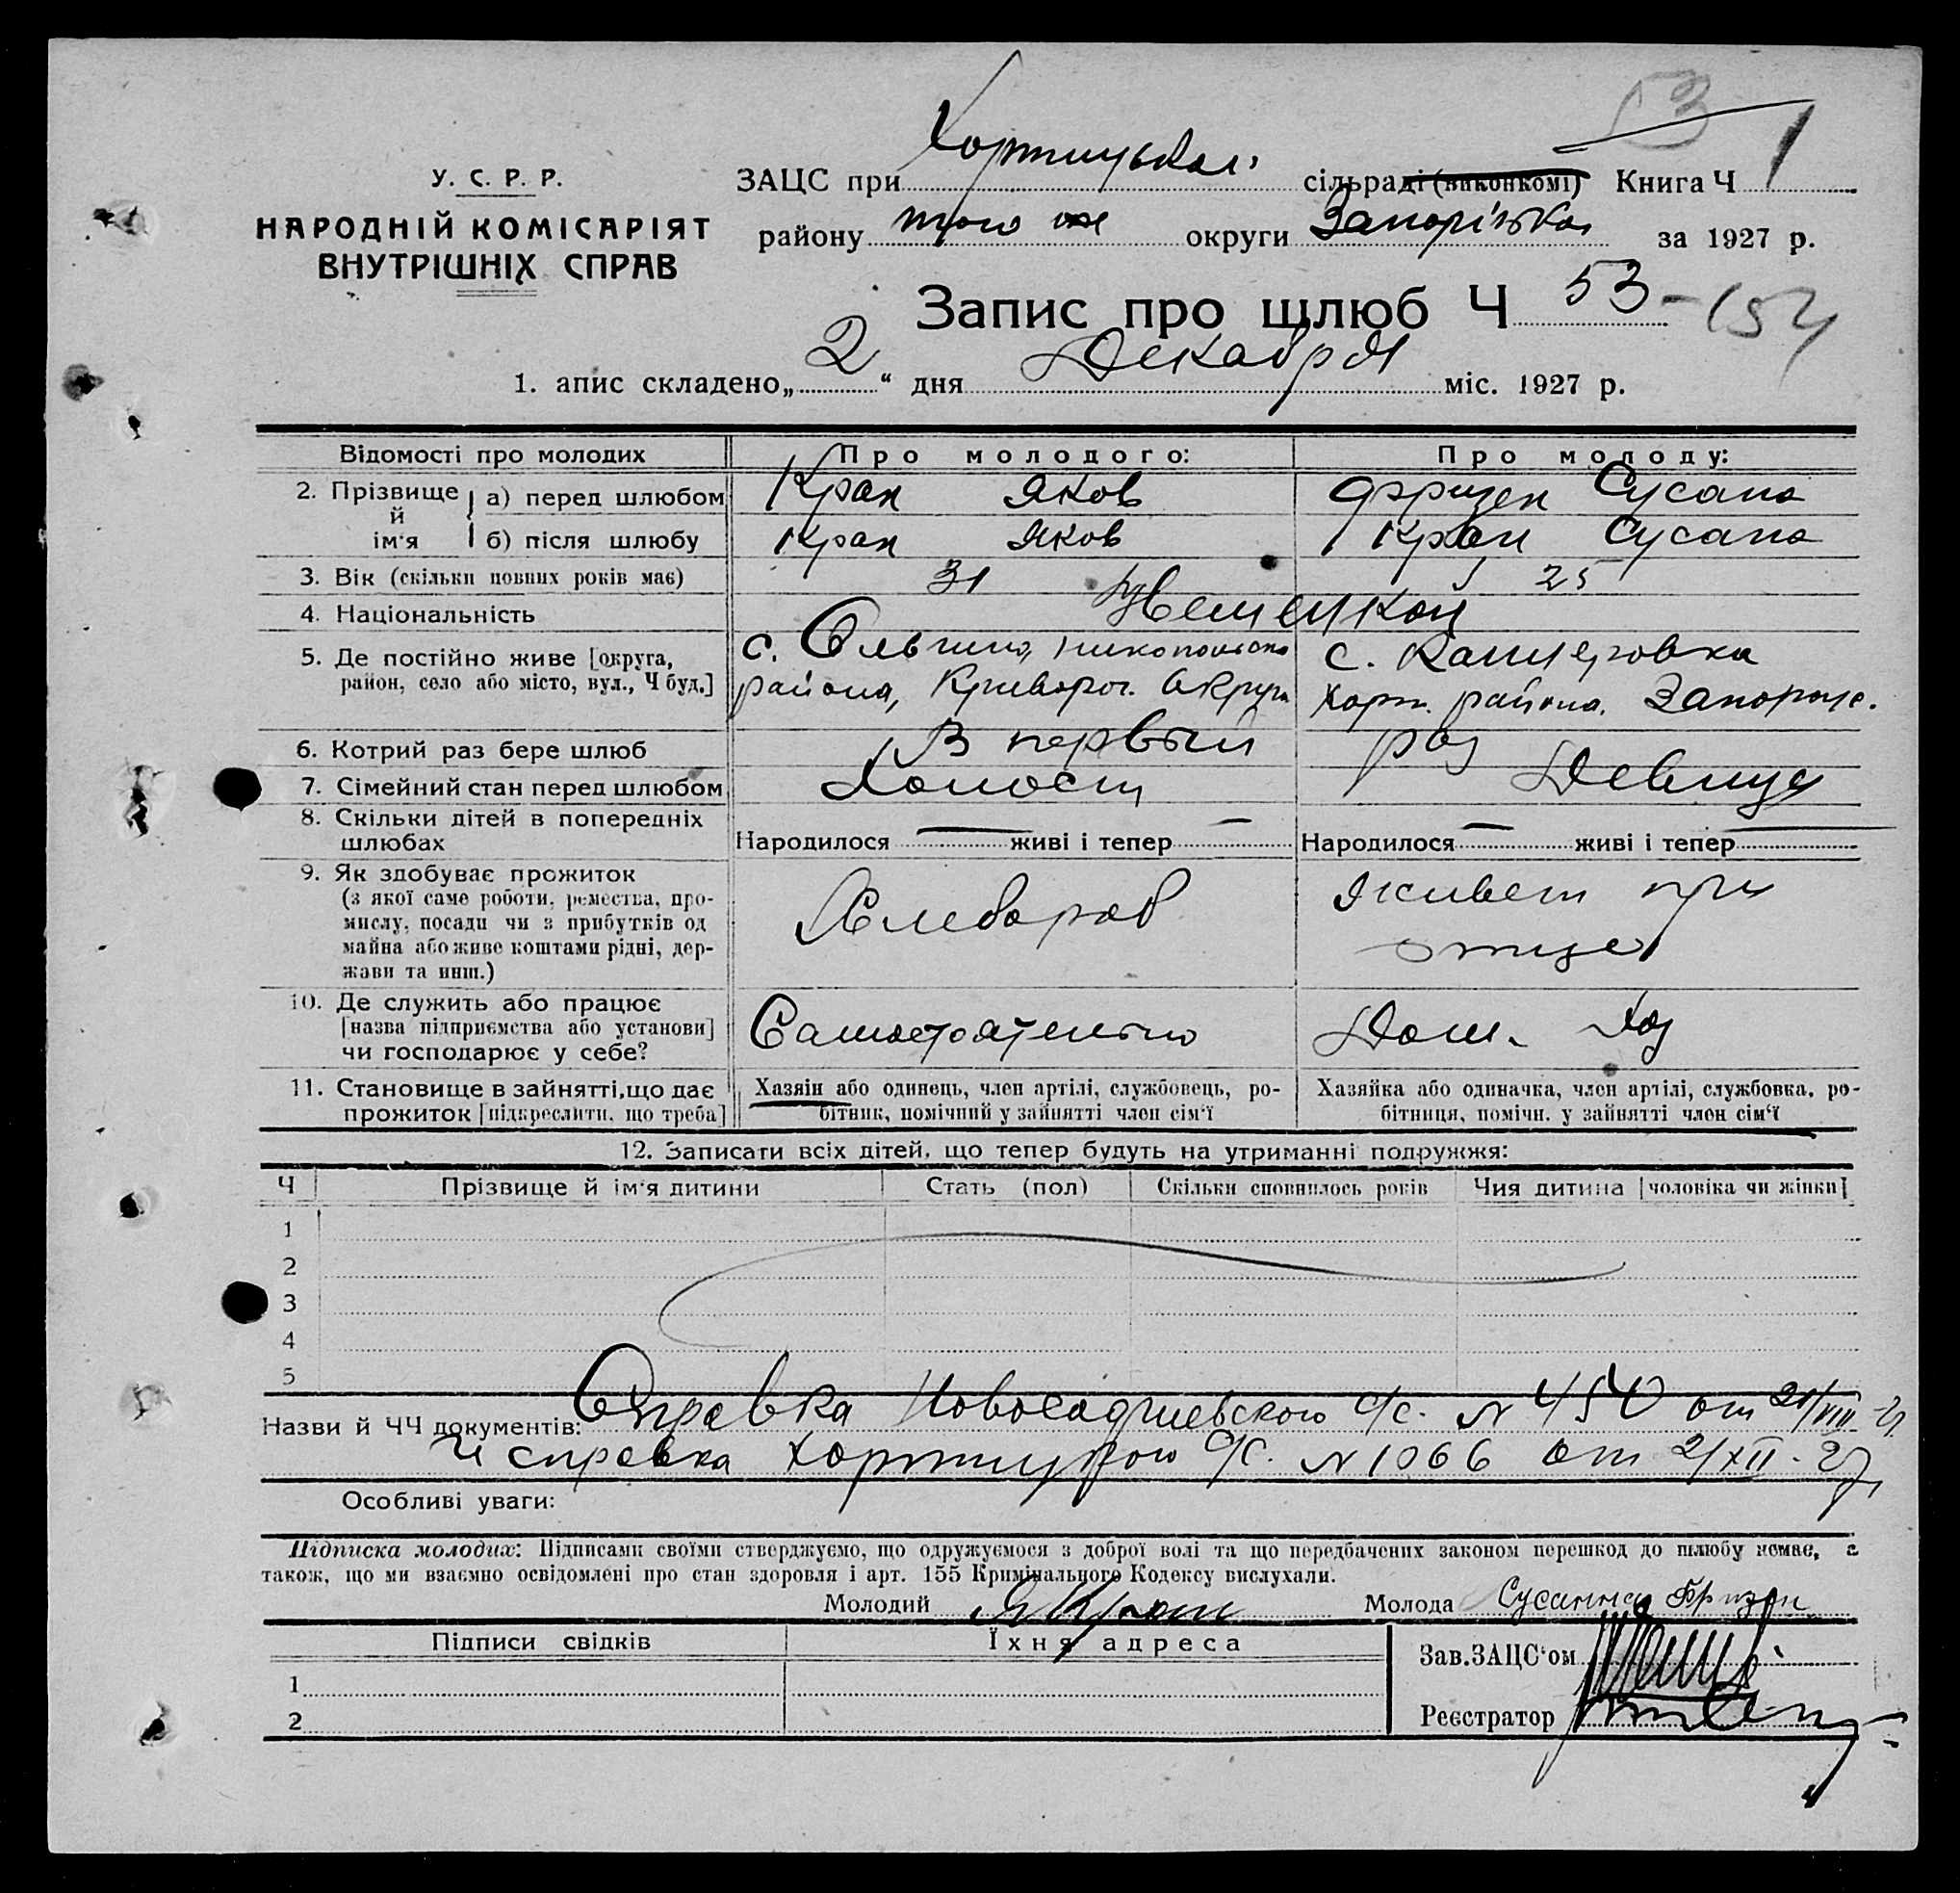 53
У. С. Р. Р.
НАРОДНІЙ КОМІСАРІЯТ
ВНУТРІШНІХ СПРАВ
ЗАЦС при Хортицькая сільраді (виконкомі) Книга Ч 1
району того же округи Запорізька за 1927 р.
Запис про шлюб Ч 53 - 154
1. апис складено „ 2 “ дня Декабря міс. 1927 р.
Відомості про молодих Про молодого: Про молоду:
2. Прізвище й ім'я а) перед шлюбом Кран Яков Фризен Сусана
б) після шлюбу Кран Яков Кран Сусана
3. Вік (скільки повних років має) 31 25
4. Національність Немецкой
5. Де постійно живе [округа, район, село або місто, вул., Ч буд.]
с. Ольгино, Никопольско района, Криворог. Округа
с. Канцеровка Хорт. района. Запорож.
6. Котрий раз бере шлюб В первый раз
7. Сімейний стан перед шлюбом Холост Девица
8. Скільки дітей в попередніх шлюбах Народилося — живі і тепер — Народилося — живі і тепер —
9. Як здобуває прожиток
(з якої саме роботи, ремества, про-
мислу, посади чи з прибутків од
майна або живе коштами рідні, дер-
жави та инш.)
Хлебороб
Живет при отце
10. Де служить або працює
[назва підприємства або установи]
чи господарює у себе?
Самостоятельно
Дом. Хоз
11. Становище в зайнятті, що дає
прожиток [підкреслити, що треба]
Хазяїн або одинець, член артілі, службовець, ро-
бітник, помічний у зайнятті член сім'ї
Хазяйка або одиначка, член артілі, службовка, ро-
бітниця, помічн. у зайнятті член сім'ї
12. Записати всіх дітей, що тепер будуть на утриманні подружжя:
Ч Прізвище й ім'я дитини Стать (пол) Скільки сповнилось років Чия дитина [чоловіка чи жінки]
1
2
3
4
5
Назви й ЧЧ документів: Справка с/с. N от
и справка с/с. N 1066 от 2/XII - 27
Особливі уваги:
Підписка молодих: Підписами своїми стверджуємо, що одружуємося з доброї волі та що передбачених законом перешкод до шлюбу немає, а
також, що ми взаємно освідомлені про стан здоровля і арт. 155 Кримінального Кодексу вислухали.
Молодий Я Кран Молода Сусанна Фризен
Підписи свідків Їхня адреса
1
2
Зав. ЗАЦС'ом
Реєстратор